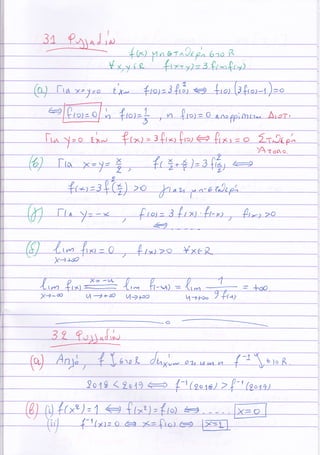 31 Φυλλαδίου
f(x) μη σταθερή στο R
∀ x,y ∈ R f(x+y)=3f(x)f(y)
(α) Για x=y=0 έχω f(0)=3f²(0) ⇔ f(0)(3f(0)-1)=0
⇔ f(0)=0 ή f(0)=1/3, η f(0)=0 απορρίπτεται Διότι
Για y=0 έχω f(x)=3f(x)f(0) ⇔ f(x)=0 Σταθερή
Άτοπο
(β) Για x=y=x/2, f(x/2+x/2)=3f²(x/2) ⇔
f(x)=3f²(x/2) >0 γιατι μη σταθερή
(γ) Για y=-x, f(0)=3f(x)·f(-x), f(x)>0
⇔ ......
(δ) lim f(x)=0, f(x)>0 ∀x∈R
x→+∞
lim f(x) x=-u lim f(-u) = lim 1/9f(u) = +∞
x→-∞ u→+∞ u→+∞ u→+∞
32 Φυλλαδίου
(α) Απλό, f ↓ στο R οτι και η f⁻¹ ↓ στο R.
2018 < 2019 ⇔ f⁻¹(2018) > f⁻¹(2019)
(β) (i) f(x²)=1 ⇔ f(x²)=f(0) ⇔ ..... x=0
(ii) f⁻¹(x)=0 ⇔ x=f(0) ⇔ x=1